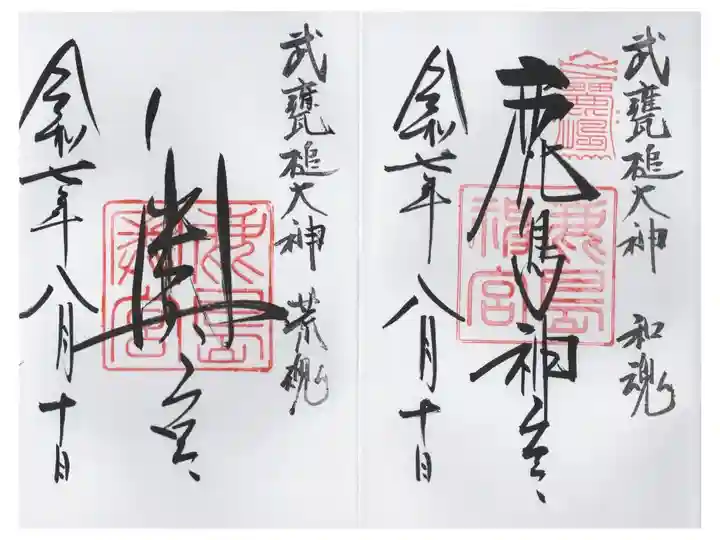 武甕槌大神 和魂
鹿島神宮
令和七年八月十日
武甕槌大神 荒魂
奥宮
令和七年八月十日
鹿島神宮